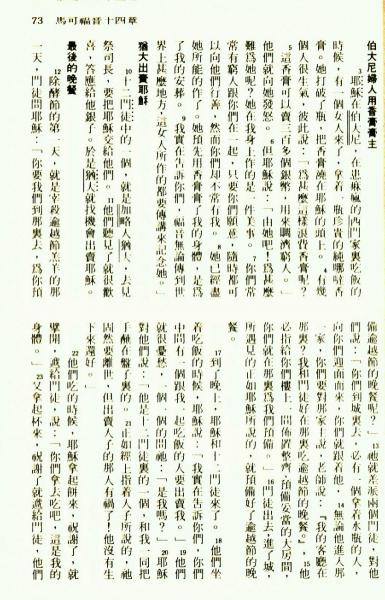 73 馬可福音十四章
伯大尼婦人用香膏膏主
3 耶穌在伯大尼,在患痲瘋的西門家裏吃飯的
時候,有一個女人來了,拿着一瓶珍貴的純哪噠香
膏。她打破了瓶,把香膏澆在耶穌的頭上。4 有幾
個人很生氣,彼此說:「爲甚麼這樣浪費香膏呢?
5 這香膏可以賣三百多個銀幣,用來賙濟窮人。」
他們就向她發怒。6 但耶穌說:「由她吧!爲甚麼
難爲她呢?她在我身上作的是一件美事。7 你們常
常有窮人跟你們在一起,只要你們願意,隨時都可
以向他們行善,然而你們却不常有我。8 她已經盡
她所能的作了。她預先用香膏膏了我的身體,是爲
了我的安葬。9 我實在告訴你們,福音無論傳到世
界上甚麼地方,這女人所作的都要傳講來記念她。」
猶大出賣耶穌
10 十二門徒中的一個,就是加略人猶大,去見
祭司長,要把耶穌交給他們。11 他們聽見了就很歡
喜,答應給他銀子。於是猶大就找機會出賣耶穌。
最後的晚餐
12 除酵節的第一天,就是宰殺逾越節羊羔的那
一天,門徒問耶穌:「你要我們到那裏去,爲你預
備逾越節的晚餐呢?」13 祂就差派兩個門徒,對他
們說:「你們到城裏去,必有一個拿着水瓶的人,
向你們迎面而來,你們就跟着他,14 無論他進入那
一家,你們要對那家主說,老師說:『我的客廳在
那裏?我和門徒好在那裏吃逾越節的晚餐。』15 他
必指給你們樓上一間佈置整齊、預備妥當的大房間,
你們就在那裏爲我們預備。」16 門徒出去,進了城,
所遇見的正如耶穌所說的,就預備好了逾越節的晚
餐。
17 到了晚上,耶穌和十二門徒來了。18 他們坐
着吃飯的時候,耶穌說:「我實在告訴你們,你們
中間有一個跟我一起吃飯的人要出賣我。」19 他們
就很憂愁,一個一個的問祂:「是我嗎?」20 耶穌
對他們說:「他是十二門徒裏的一個,和我一同把
手蘸在盤子裏的。21 正如經上指着人子所說的,祂
固然要離世,但出賣人子的那人有禍了!他沒有生
下來還好。」
22 他們吃的時候,耶穌拿起餅來,祝謝了,就
擘開,遞給門徒,說:「你們拿去吃吧,這是我的
身體。」23 又拿起杯來,祝謝了就遞給門徒,他們